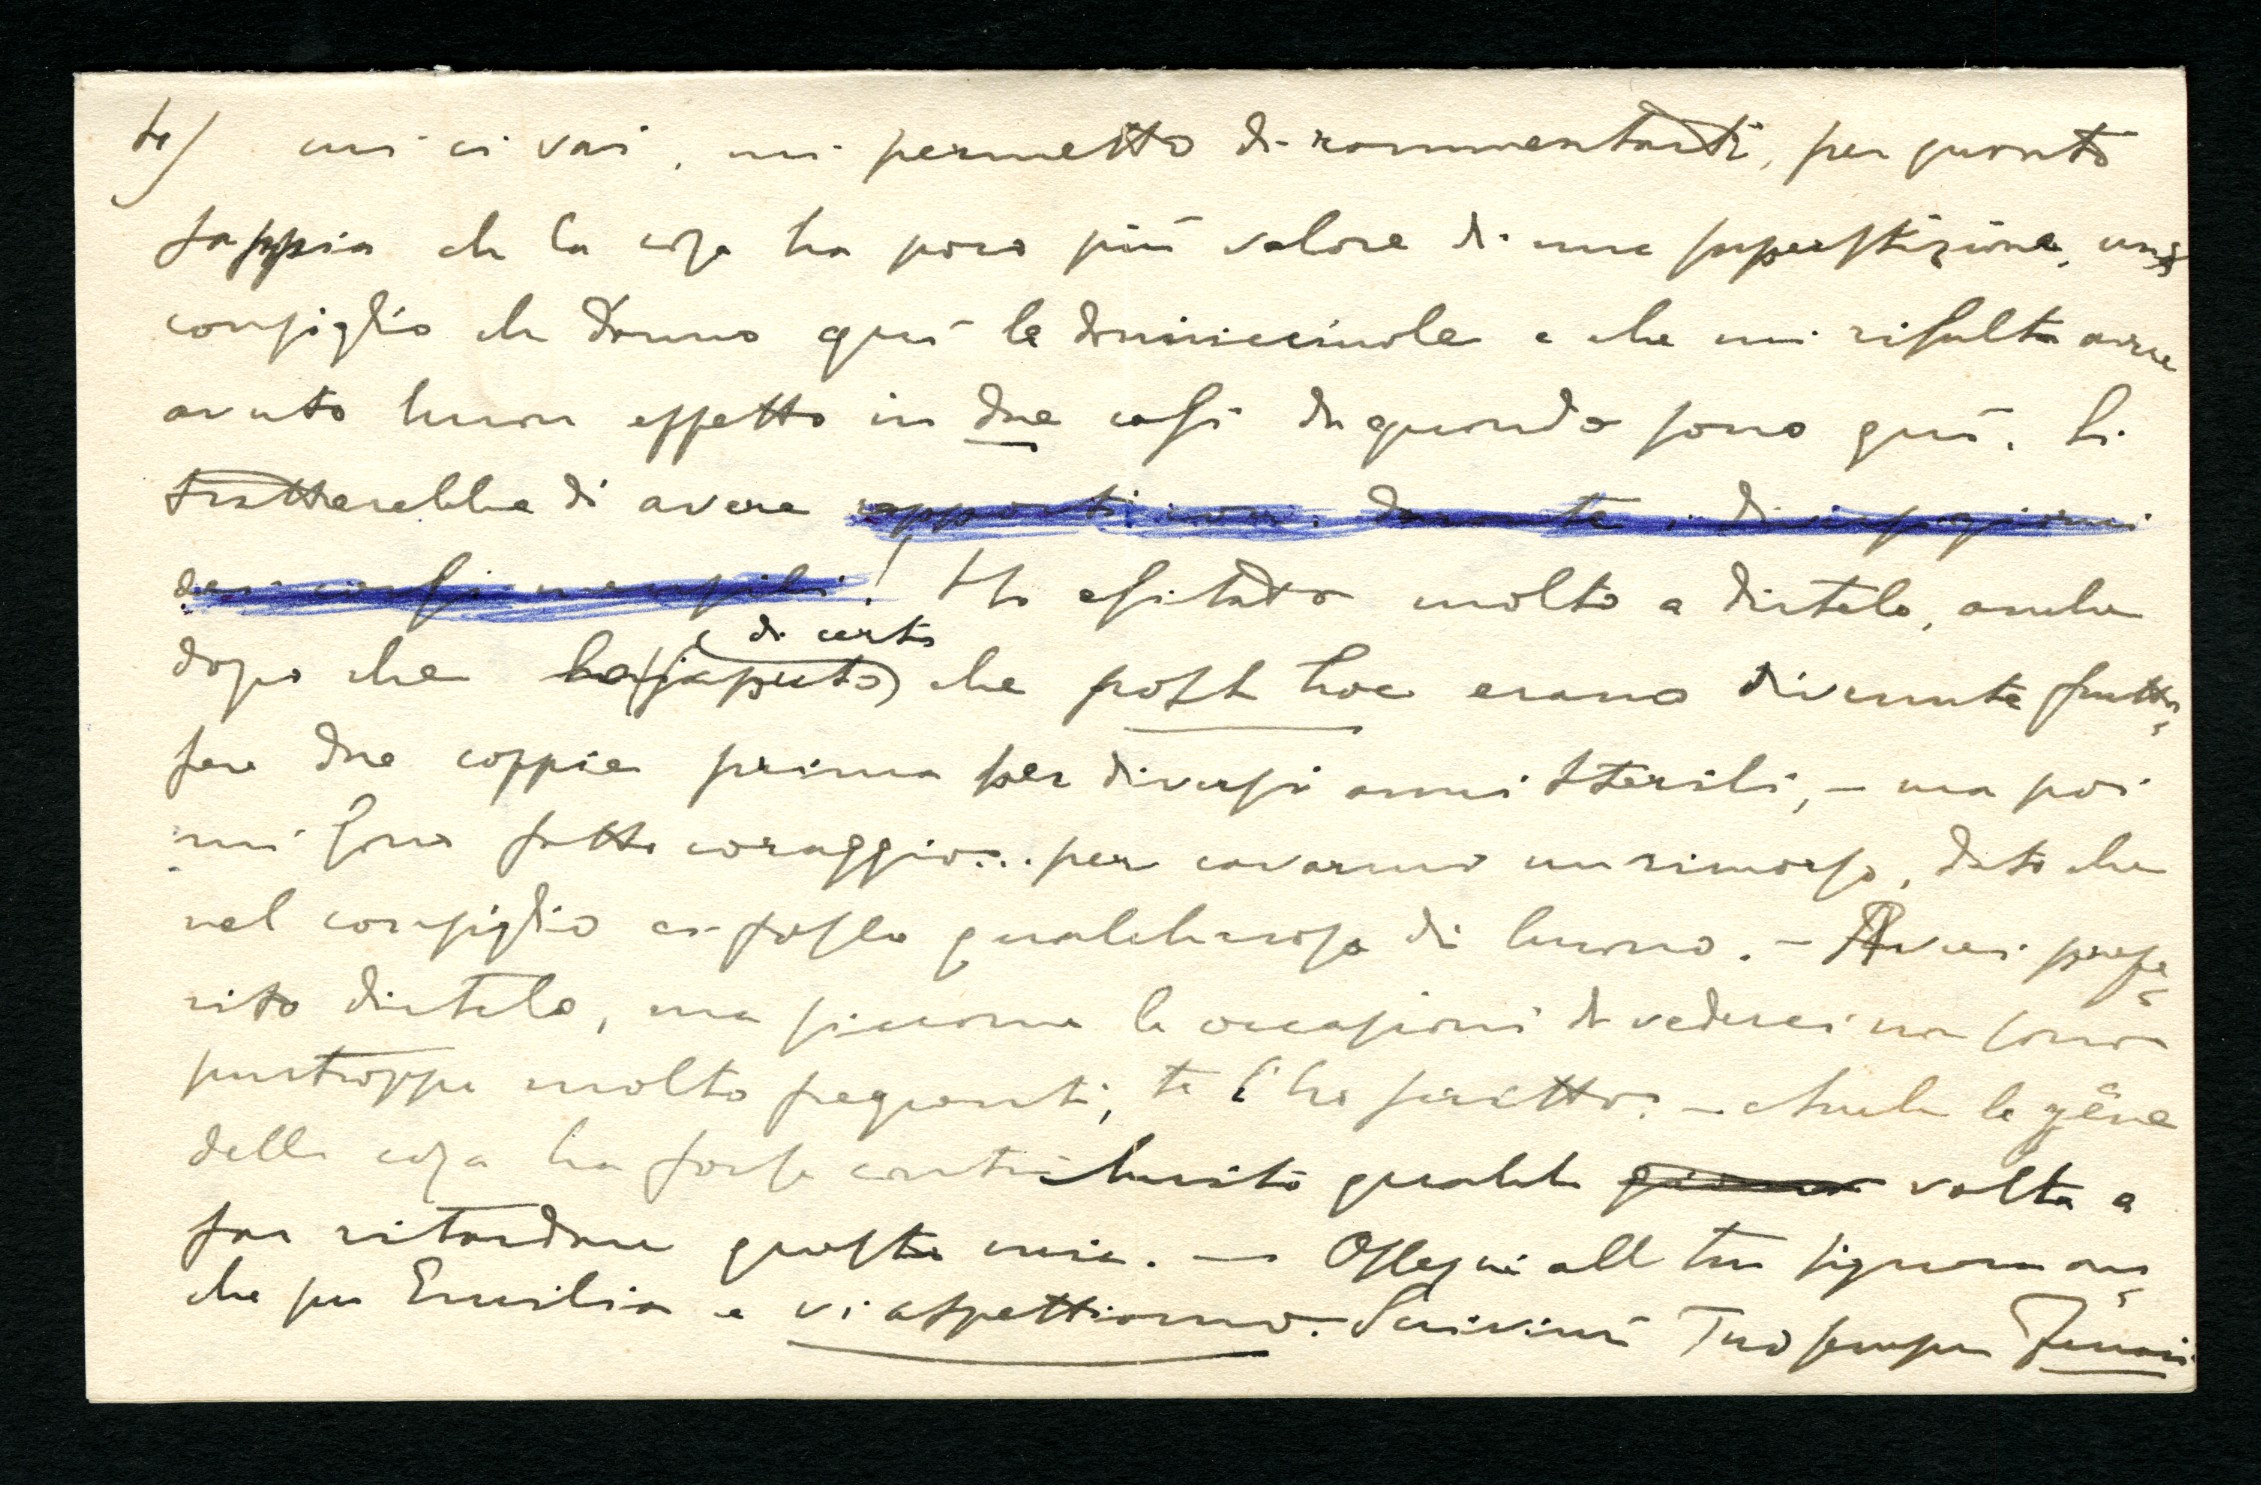 4) cui ci vai, mi permetto di rammentarti, per quanto
sappia che la cosa ha poco più valore di una superstizione, un
consiglio che danno quì le donnicciuole e che mi risulta avere
avuto buon effetto in due casi da quando sono quì. Si
tratterebbe di avere rapporti durante
mensili! Ho esitato molto a dirtelo, anche
dopo che ho saputo di certo che post hoc erano divenute frutti-
fere due coppie prima per diversi anni sterili, – ma poi
mi sono fatto coraggio... per cavarmi un rimorso, dato che
nel consiglio ci fosse qualchecosa di buono. – Avrei prefe-
rito dirtelo, ma siccome le occasioni di vederci non sono
purtroppo molto frequenti, te l'ho scritto. – Anche la gêne
della cosa ha forse contribuito qualche volta a
far ritardare questa mia. – Ossequi alla tua signora an-
che per Emilia e vi aspettiamo. Scrivimi Tuo sempre